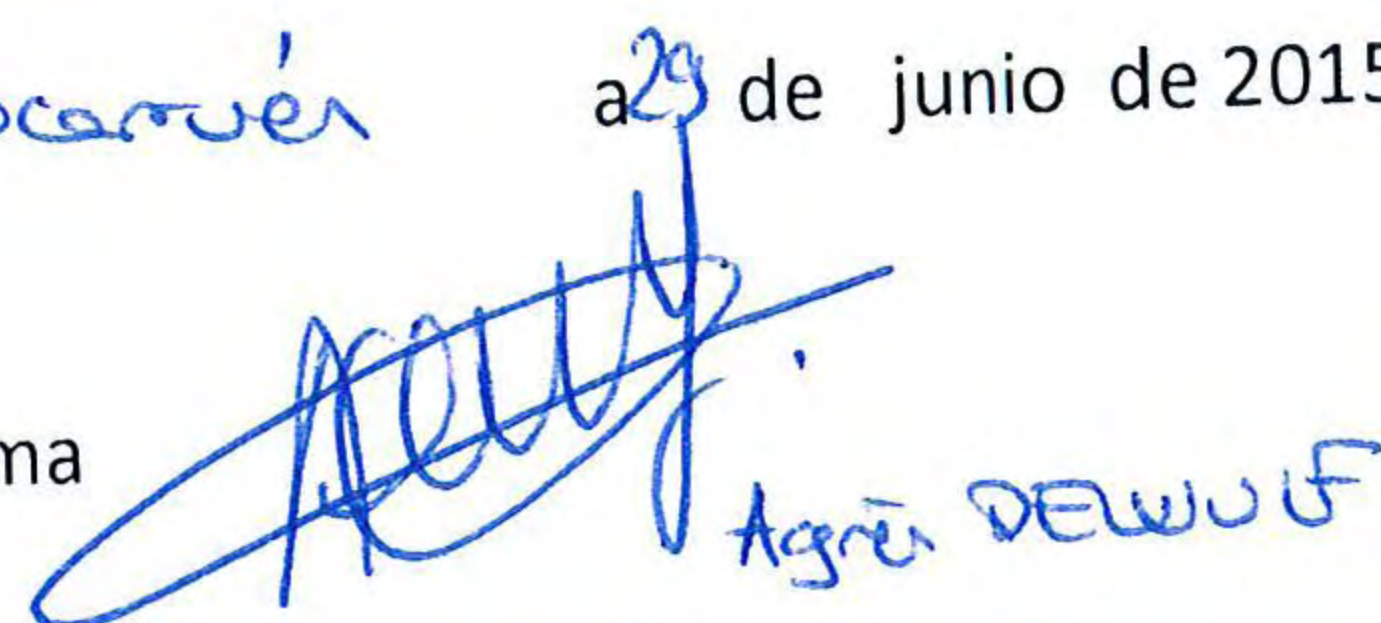 a 29 de junio de 2015
ma
Agnès DEWULF